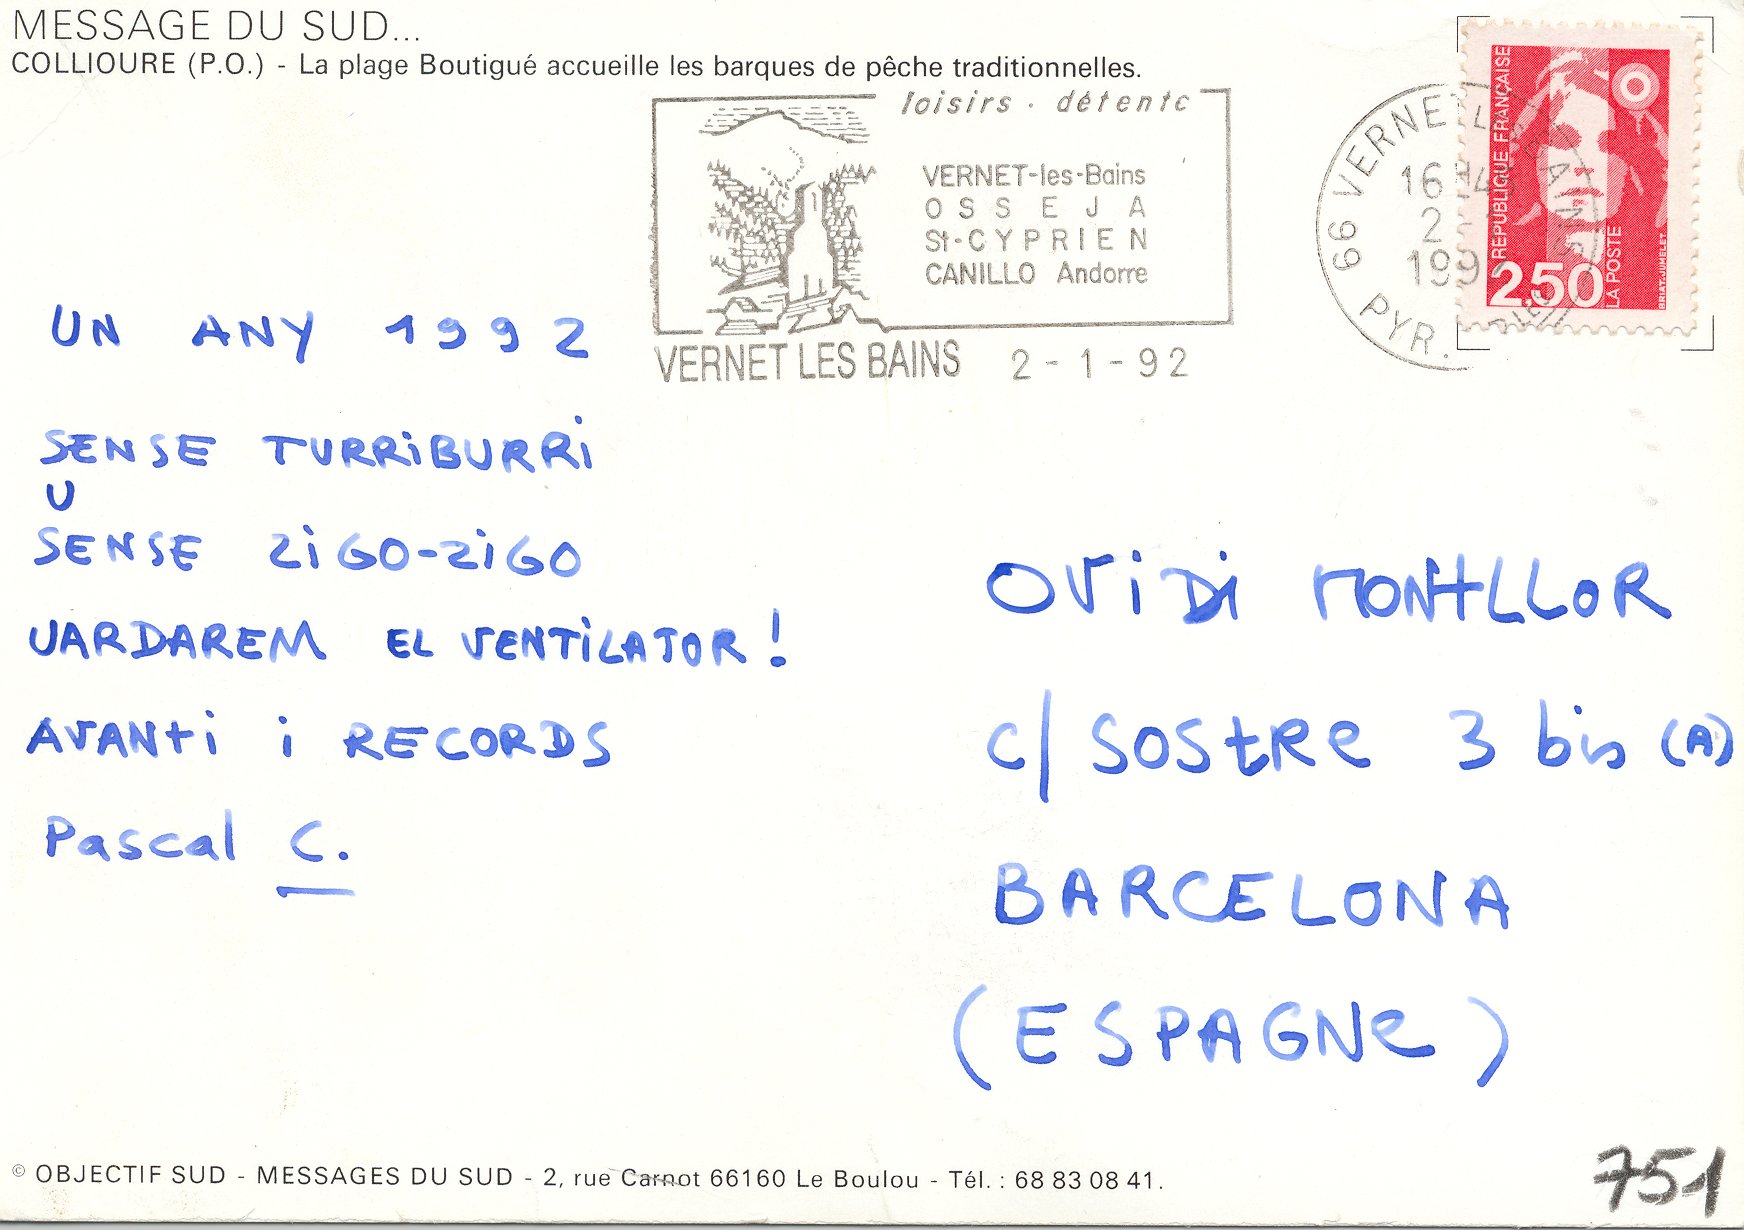 MESSAGE DU SUD...
COLLIOURE (P.O.) - La plage Boutigué accueille les barques de pêche traditionnelles.
loisirs · détente
VERNET-les-Bains
OSSEJA
St-CYPRIEN
CANILLO Andorre
VERNET LES BAINS 2-1-92
66 VERNET LES BAINS
PYR.
16H
2
199
REPUBLIQUE FRANÇAISE
2,50
LA POSTE
BRIAT-JUMELET
UN ANY 1992
SENSE TURRiBURRi
U
SENSE ZiGO-ZiGO
UARDAREM EL VENTiLATOR!
AVANTi i RECORDS
Pascal C.
OViDi MONTLLOR
c/ SOStRe 3 bis (A)
BARCELONA
(ESPAGNe)
© OBJECTIF SUD - MESSAGES DU SUD - 2, rue Carnot 66160 Le Boulou - Tél. : 68 83 08 41.
751